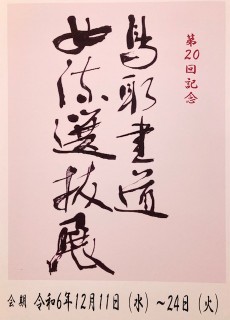 第20回記念
鳥取書道
女流選抜展
会期 令和6年12月11日（水）～24日（火）